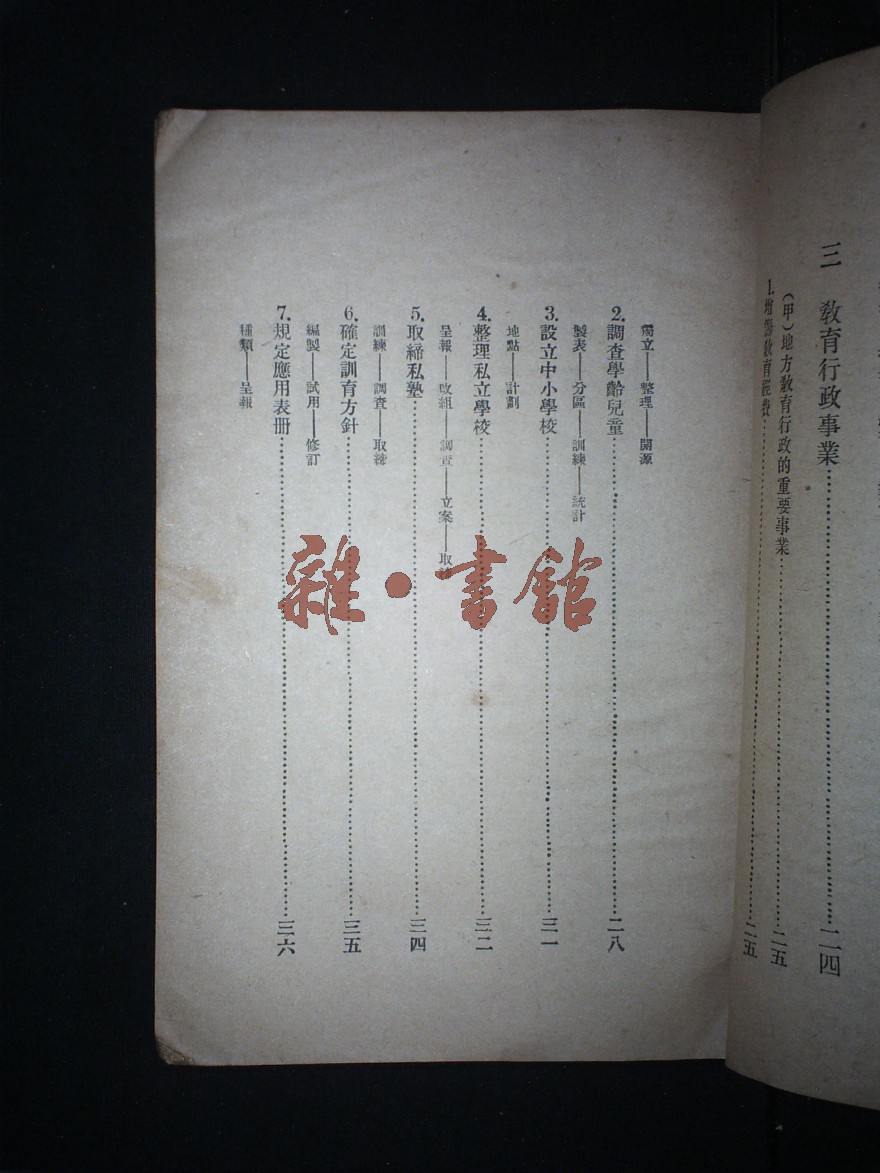 三 教育行政事業……二四
(甲)地方教育行政的重要事業……二五
1.增籌教育經費……二五
獨立——整理——開源
2.調查學齡兒童……二八
製表——分區——訓練——統計
3.設立中小學校……三一
地點——計劃
4.整理私立學校……三二
呈報——改組——調查——立案——取締
5.取締私塾……三四
訓練——調查——取締
6.確定訓育方針……三五
編製——試用——修訂
7.規定應用表册……三六
種類——呈報
雜·書館